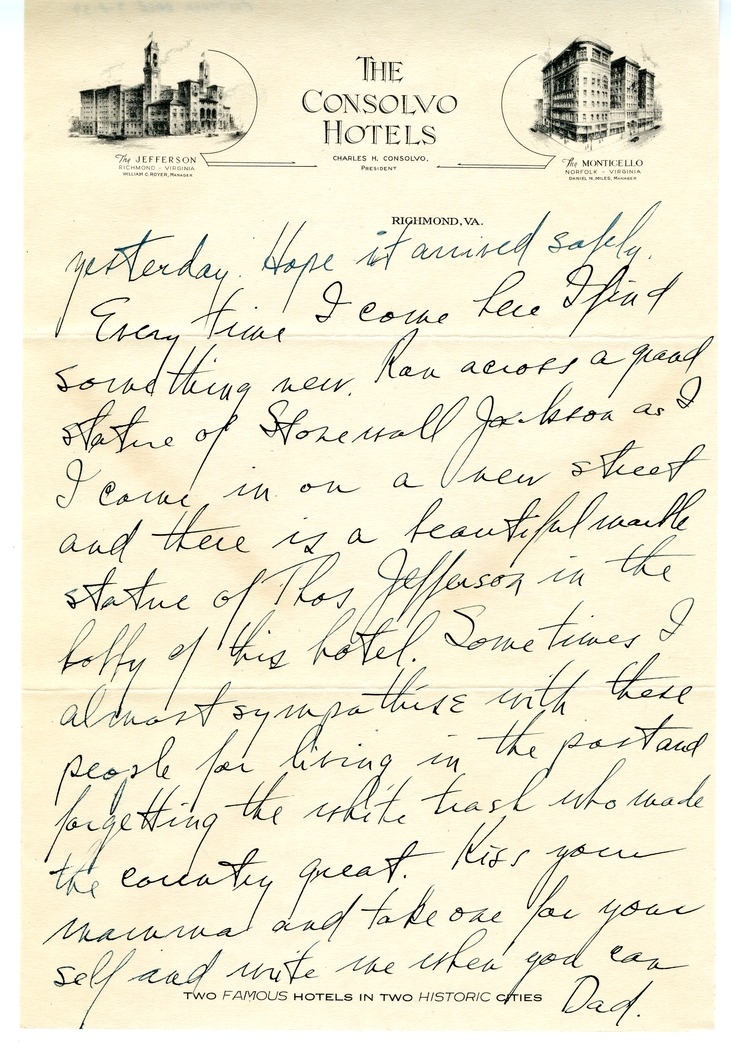 THE
CONSOLVO
HOTELS
CHARLES H. CONSOLVO,
PRESIDENT
The JEFFERSON
RICHMOND - VIRGINIA
WILLIAM C. ROYER, MANAGER
The MONTICELLO
NORFOLK - VIRGINIA
DANIEL N. MILES, MANAGER
RICHMOND, VA.
yesterday. Hope it arrived safely.
Every time I come here I find
something new. Ran across a grand
statue of Stonewall Jackson as I
I came in on a new street
and there is a beautiful marble
statue of Thos Jefferson in the
lobby of this hotel. Sometimes I
almost sympathise with these
people for living in the past and
forgetting the white trash who made
the country great. Kiss your
mamma and take one for your
self and write me when you can
Dad.
TWO FAMOUS HOTELS IN TWO HISTORIC CITIES